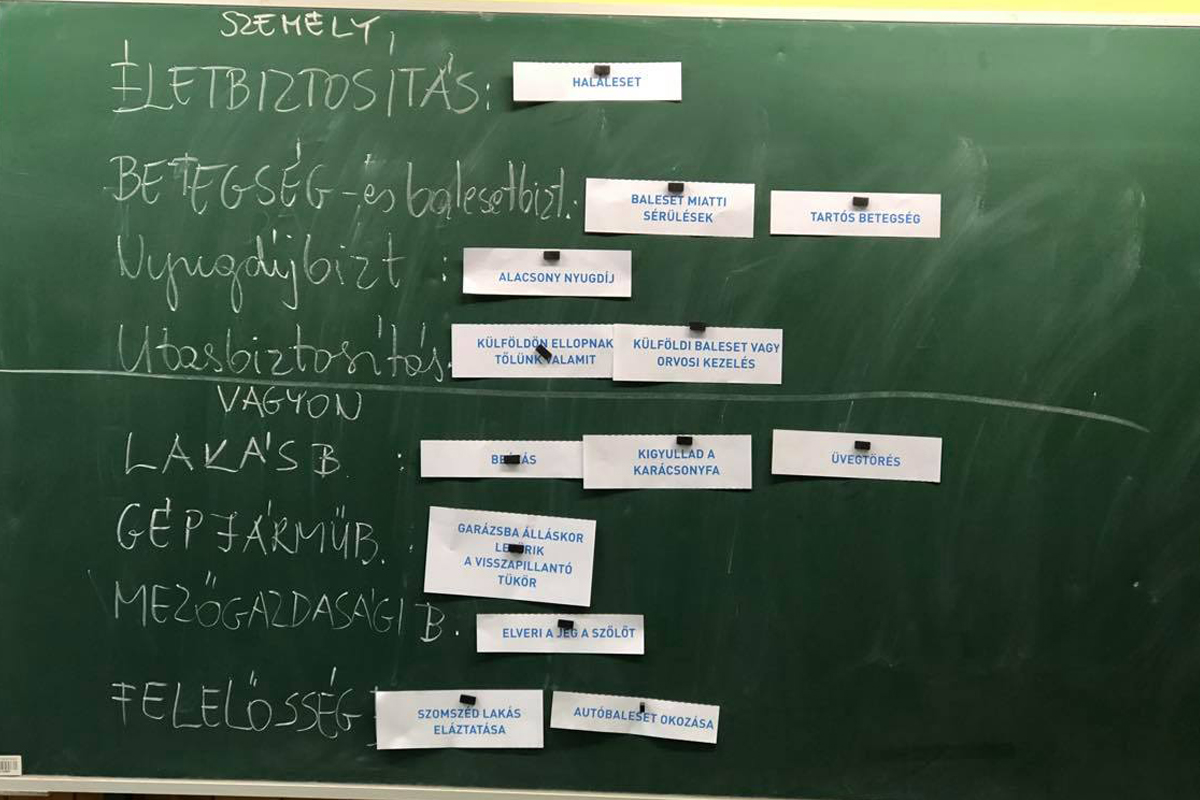 SZEMÉLY
ÉLETBIZTOSÍTÁS: HALÁLESET
BETEGSÉG - és balesetbizt.: BALESET MIATTI SÉRÜLÉSEK TARTÓS BETEGSÉG
Nyugdíjbizt : ALACSONY NYUGDÍJ
Utasbiztosítás. KÜLFÖLDÖN ELLOPNAK TŐLÜNK VALAMIT KÜLFÖLDI BALESET VAGY ORVOSI KEZELÉS
VAGYON
LAKÁS B : KIGYULLAD A KARÁCSONYFA ÜVEGTÖRÉS
GÉPJÁRMŰB. : GARÁZSBA ÁLLÁSKOR A VISSZAPILLANTÓ TÜKÖR
MEZŐGAZDASÁGI B. ELVERI A JÉG A SZŐLŐT
FELELŐSSÉG SZOMSZÉD LAKÁS ELÁZTATÁSA AUTÓBALESET OKOZÁSA